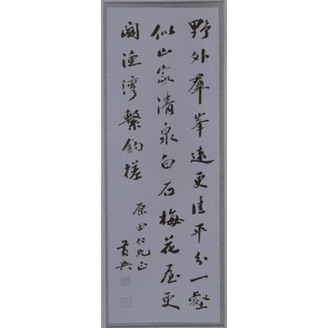 野外群峯遠更佳平分一壑
似山家清泉白石梅花屋更
闢漁灣繫釣槎
原田仁兄正
黃興